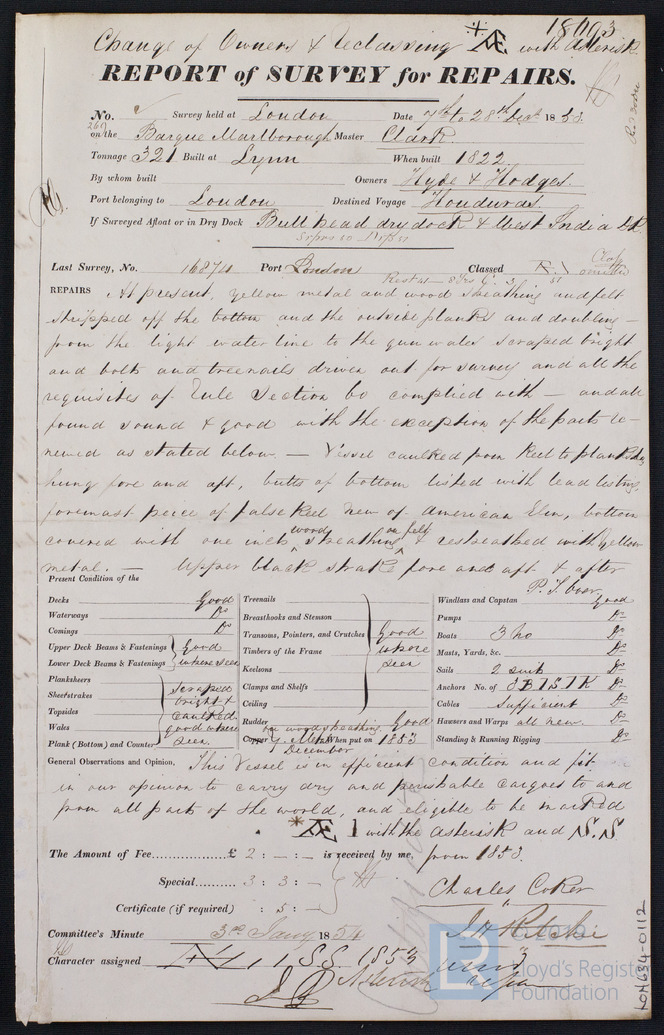 18003
Change of Owners & Reclassing *Æ with Asterisk
REPORT of SURVEY for REPAIRS.
No. Survey held at London Date 7th to 28th Decr 1853
on the Barque Marlborough Master Clark
Tonnage 321 Built at Lynn When built 1822
By whom built Owners Hyde & Hodges.
Port belonging to London Destined Voyage Honduras
If Surveyed Afloat or in Dry Dock Bull head dry dock & West India Dk
Last Survey, No. 16874 Port London Classed Æ 1
REPAIRS At present, yellow metal and wood sheathing and felt
stripped off the bottom and the outside planks and doubling
from the light water line to the gunwales scraped bright
and bolts and treenails driven out for survey and all the
requisites of Rule Section 60 complied with — and all
found sound & good with the exception of the parts re-
newed as stated below. — Vessel caulked from keel to planksheer
hung fore and aft, butts of bottom listed with lead listing,
foremast peice of false keel new of American Elm, bottom
covered with one inch wood sheathing on felt & resheathed with yellow
metal. — Upper black strake fore and aft & after
P. T. Over
Present Condition of the
Decks Good
Waterways Do
Comings Do
Upper Deck Beams & Fastenings Good
Lower Deck Beams & Fastenings where seen
Planksheers scraped
Sheerstrakes bright &
Topsides caulked
Wales good where
Plank (Bottom) and Counter seen.
Treenails
Breasthooks and Stemson
Transons, Pointers, and Crutches Good
Timbers of the Frame where
Keelsons seen
Clamps and Shelfs
Ceiling
Rudder Good
on wood sheathing
Copper Y. Metal When put on 1853
December
Windlass and Capstan good
Pumps Do
Boats 3 No Do
Masts, Yards, &c. Do
Sails 2 suit Do
Anchors No. of 3B 1S 1K Do
Cables sufficient Do
Hawsers and Warps all new. Do
Standing & Running Rigging Do
General Observations and Opinion, This Vessel is in efficient condition and fit
in our opinion to carry dry and perishable cargoes to and
from all parts of the world, and eligible to be marked
*Æ 1 with the asterisk and S.S.
The Amount of Fee................£ 2 : – : – is received by me, from 1853.
Special.......... 3 : 3 : –
Certificate (if required) : 5 : –
Charles Coker
J H Ritchie
Committee's Minute 3rd Jany 1854
Character assigned Æ 1 SS 1853
LON634-0112
Lloyd's Register
Foundation